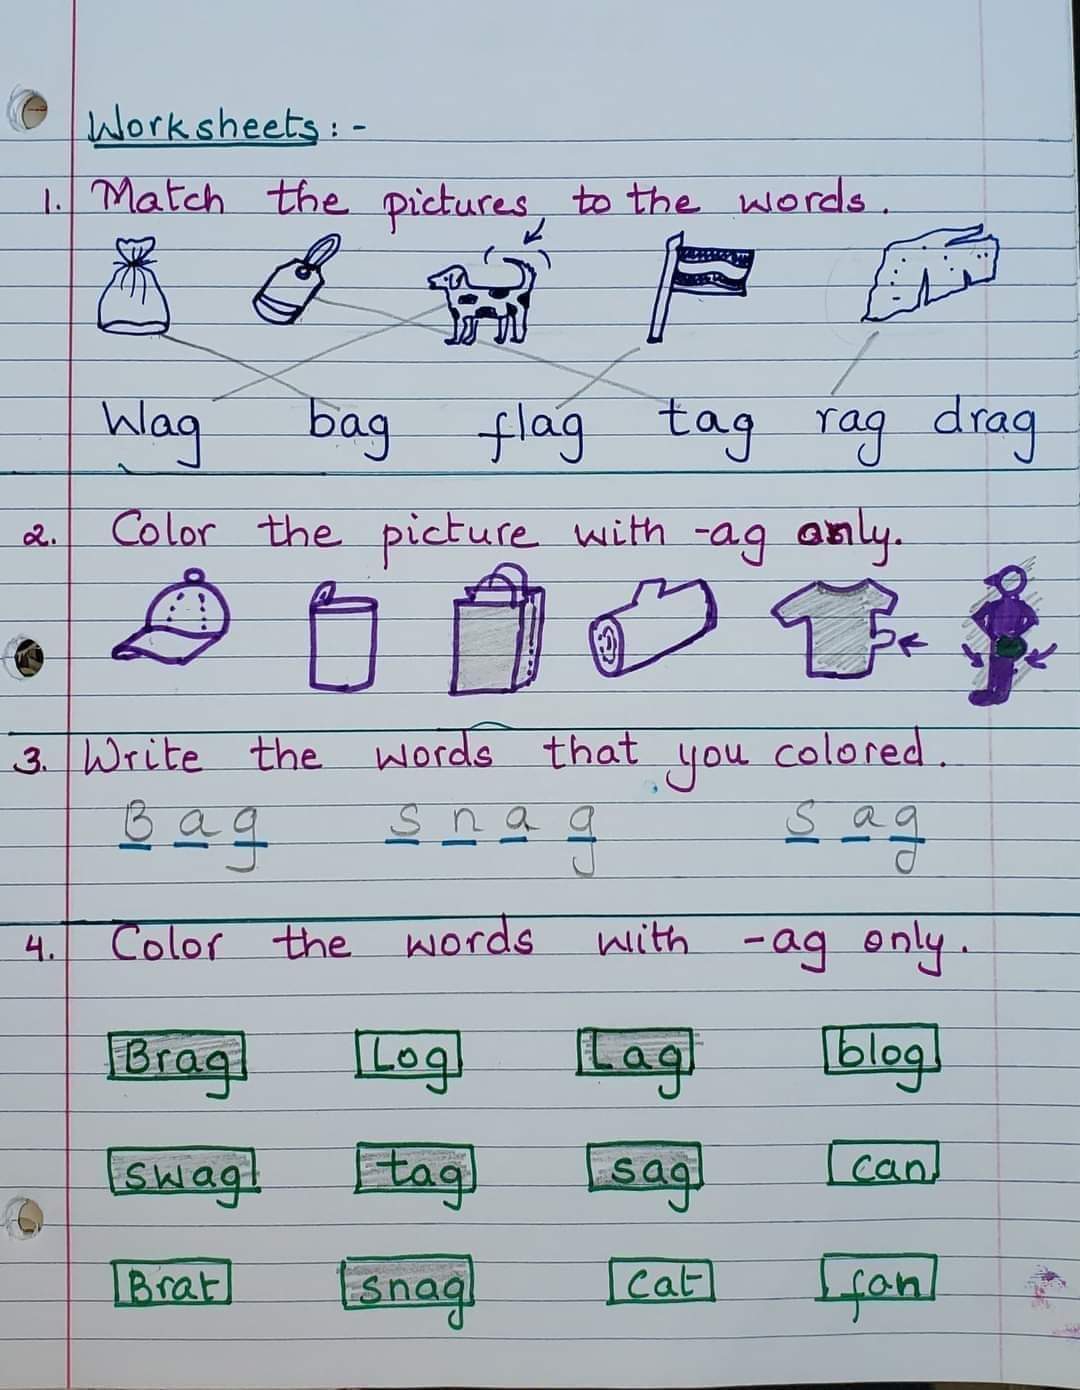 Worksheets:-
1. Match the pictures to the words.
Wag bag flag tag rag drag
2. Color the picture with -ag only.
3. Write the words that you colored.
Bag snag sag
4. Color the words with -ag only.
Brag Log Lag blog
swag tag sag can
Brat snag cat fan